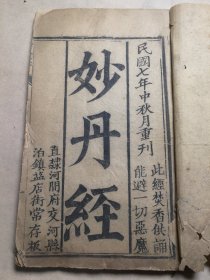 民國七年中秋月重刊
此經焚香供誦
能避一切惡魔
妙丹經
直隸河間府交河縣
泊鎮益店街常存板